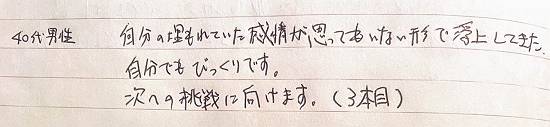 40代男性 自分の埋もれていた感情が思ってもいない形で浮上してきた。
自分でもびっくりです。
次への挑戦に向けます。(3本目)